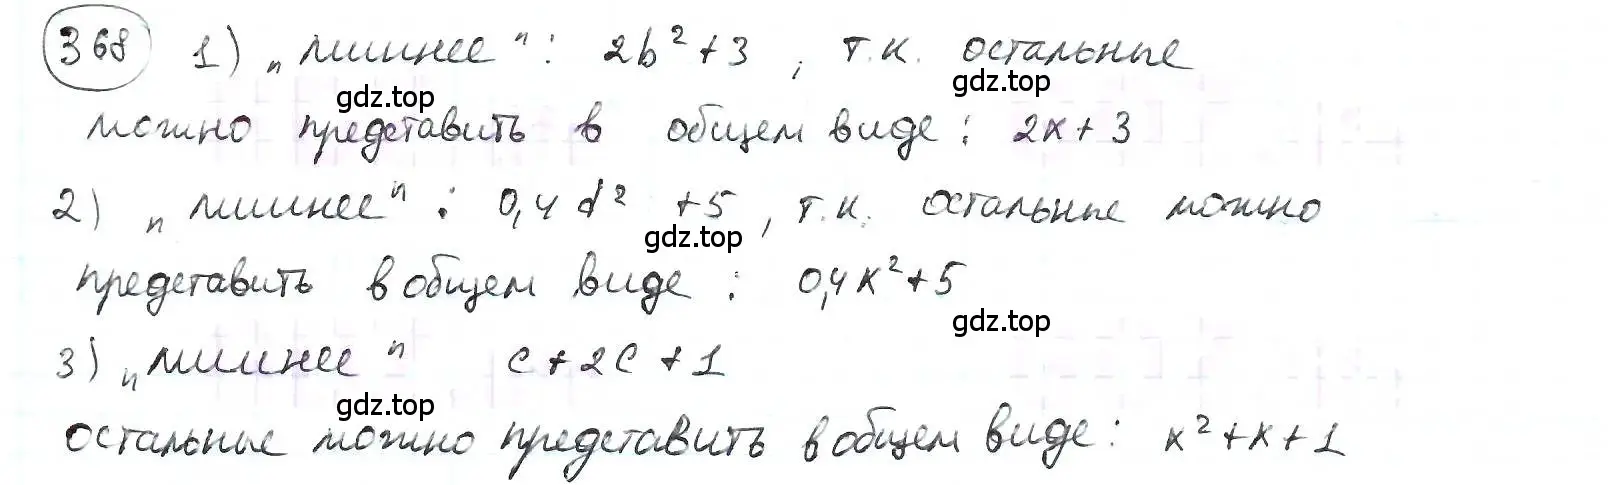 368 1) „лишнее": 2b² + 3, т.к. остальные
gdz.top gdz.top
можно представить в общем виде: 2x + 3
2) „лишнее": 0,4d² + 5, т.к. остальные можно
gdz.top
представить в общем виде: 0,4x² + 5
gdz.top
3) „лишнее" c + 2c + 1
gdz.top
остальные можно представить в общем виде: x² + x + 1